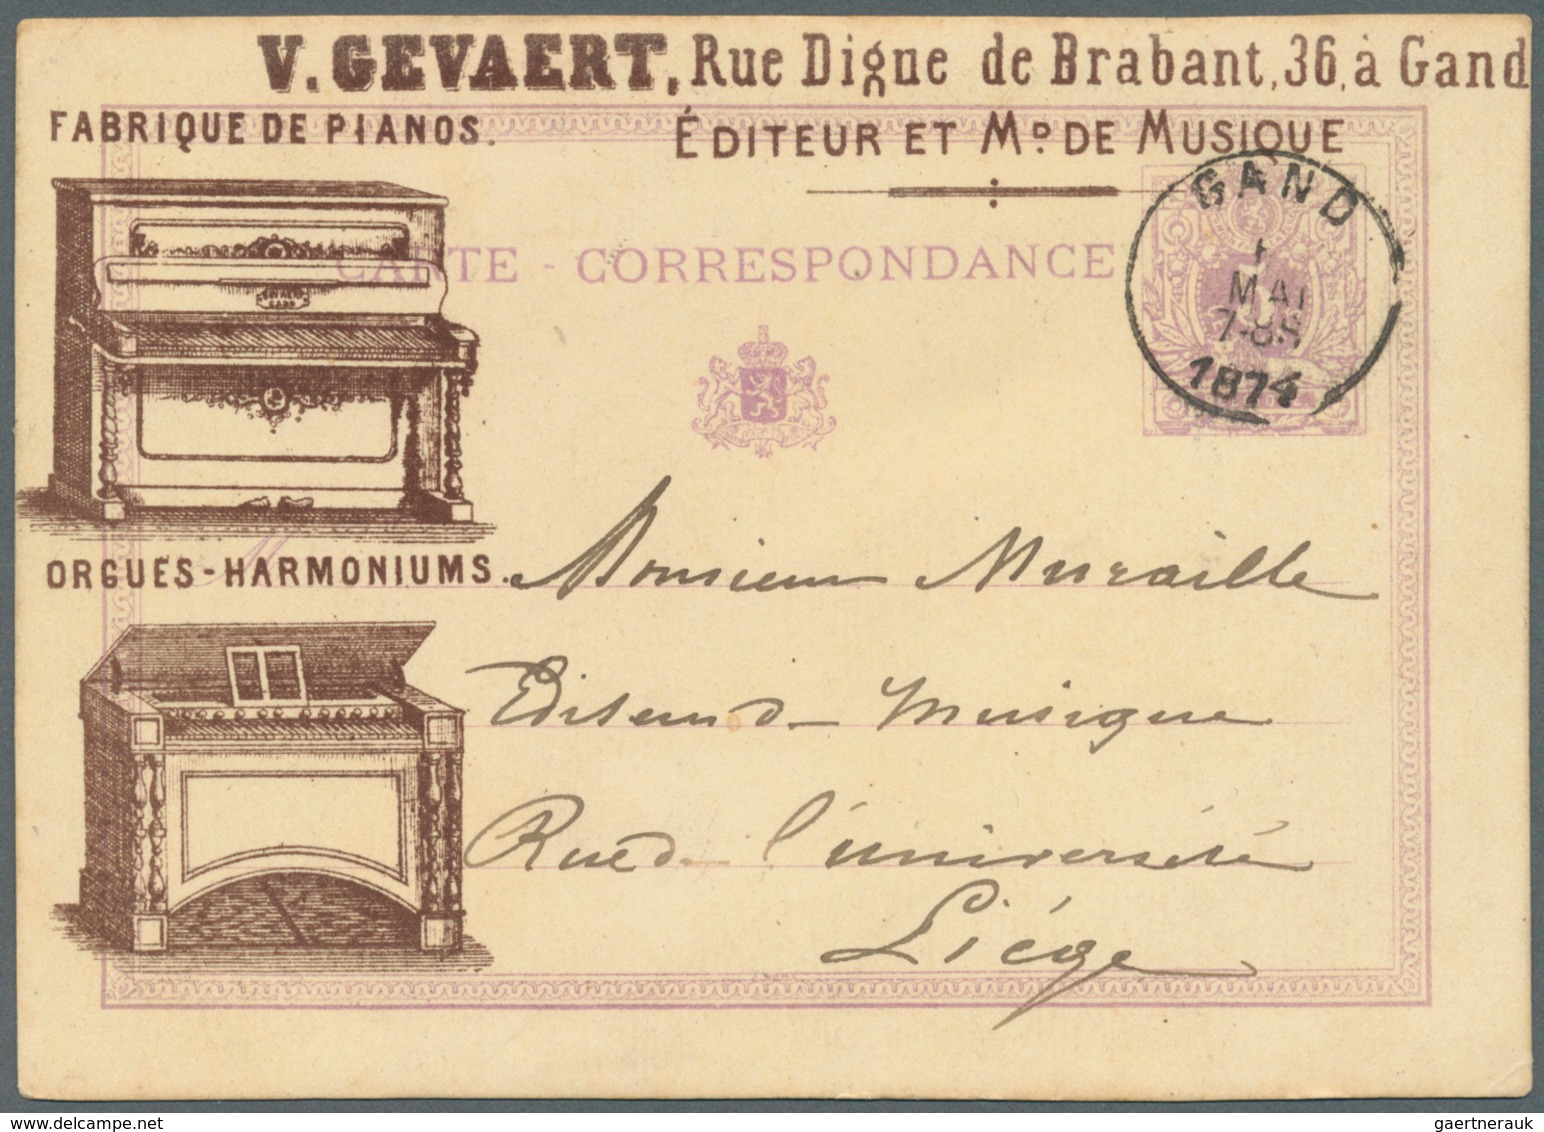 V. GEVAERT, Rue Digue de Brabant, 36, à Gand
FABRIQUE DE PIANOS.
ÉDITEUR ET Md. DE MUSIQUE
CARTE - CORRESPONDANCE
GAND
1
MAI
7-8S
1874
ORGUES-HARMONIUMS.
Monsieur Muraille
Editeur d Musique
Rue d l'université
Liége
www.delcampe.net
gaertnerauk